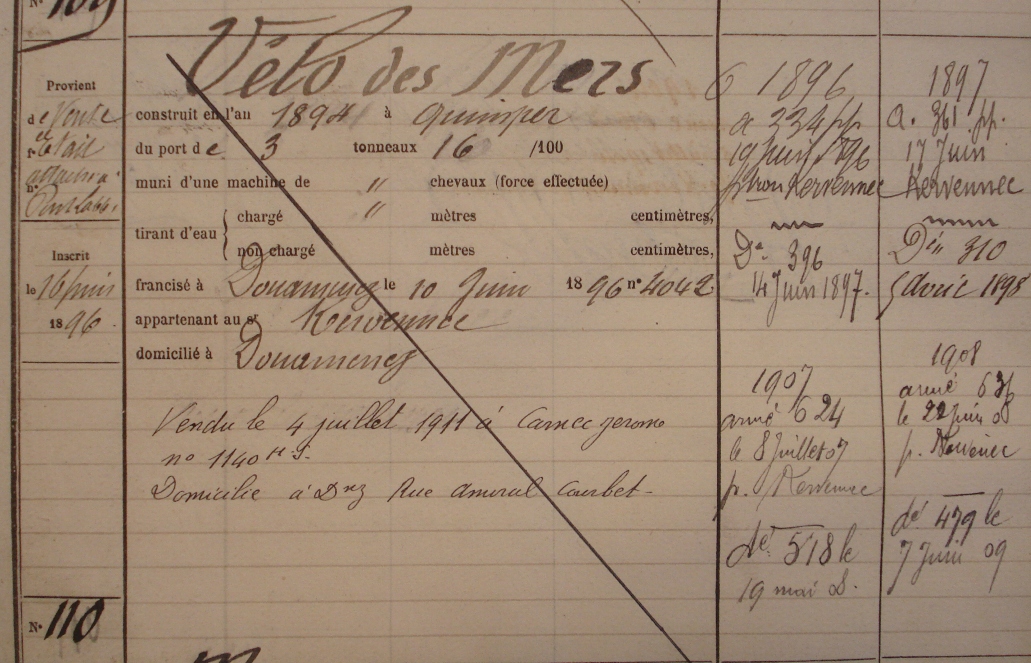 N° 109
Vélo des Mers
Provient
de Vente
et
construit en l'an 1894 à Quimper
du port de 3 tonneaux 16 /100
muni d'une machine de " chevaux (force effectuée)
tirant d'eau { chargé " mètres centimètres,
non chargé mètres centimètres,
Inscrit
le 16 juin
1896.
francisé à Douarnenez le 10 Juin 1896 n° 4042
appartenant au sr Kervennec
domicilié à Douarnenez
Vendu le 4 juillet 1911 à Carnec jerome
n° 1140 H.S.
Domicilie à Dnz Rue amiral Courbet-
1896
a 334 pp
19 Juin 1896
patron Kervennec
Da 396
14 Juin 1897.
1907
armé 624
le 8 Juillet 07
p. Kervennec
dé 518 le
19 mai 8.
1897
a. 361 pp.
17 Juin
Kervennec
Dén 310
5 Avril 1898
1908
armé 636
le 22 juin 08
p.
dé 479 le
7 Juin 09
N° 110